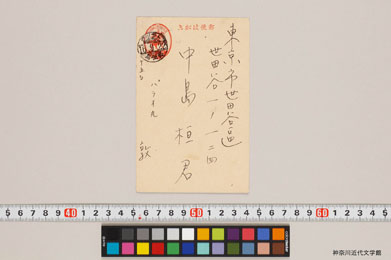 郵便はがき
東京市世田谷区
世田谷一ノ一二四
中島桓君
パラオ丸
敦
5 6 7 8 9 40 1 2 3 4 5 6 7 8 9 50 1 2 3 4 5 6 7 8 9 60 1 2 3 4 5
神奈川近代文学館